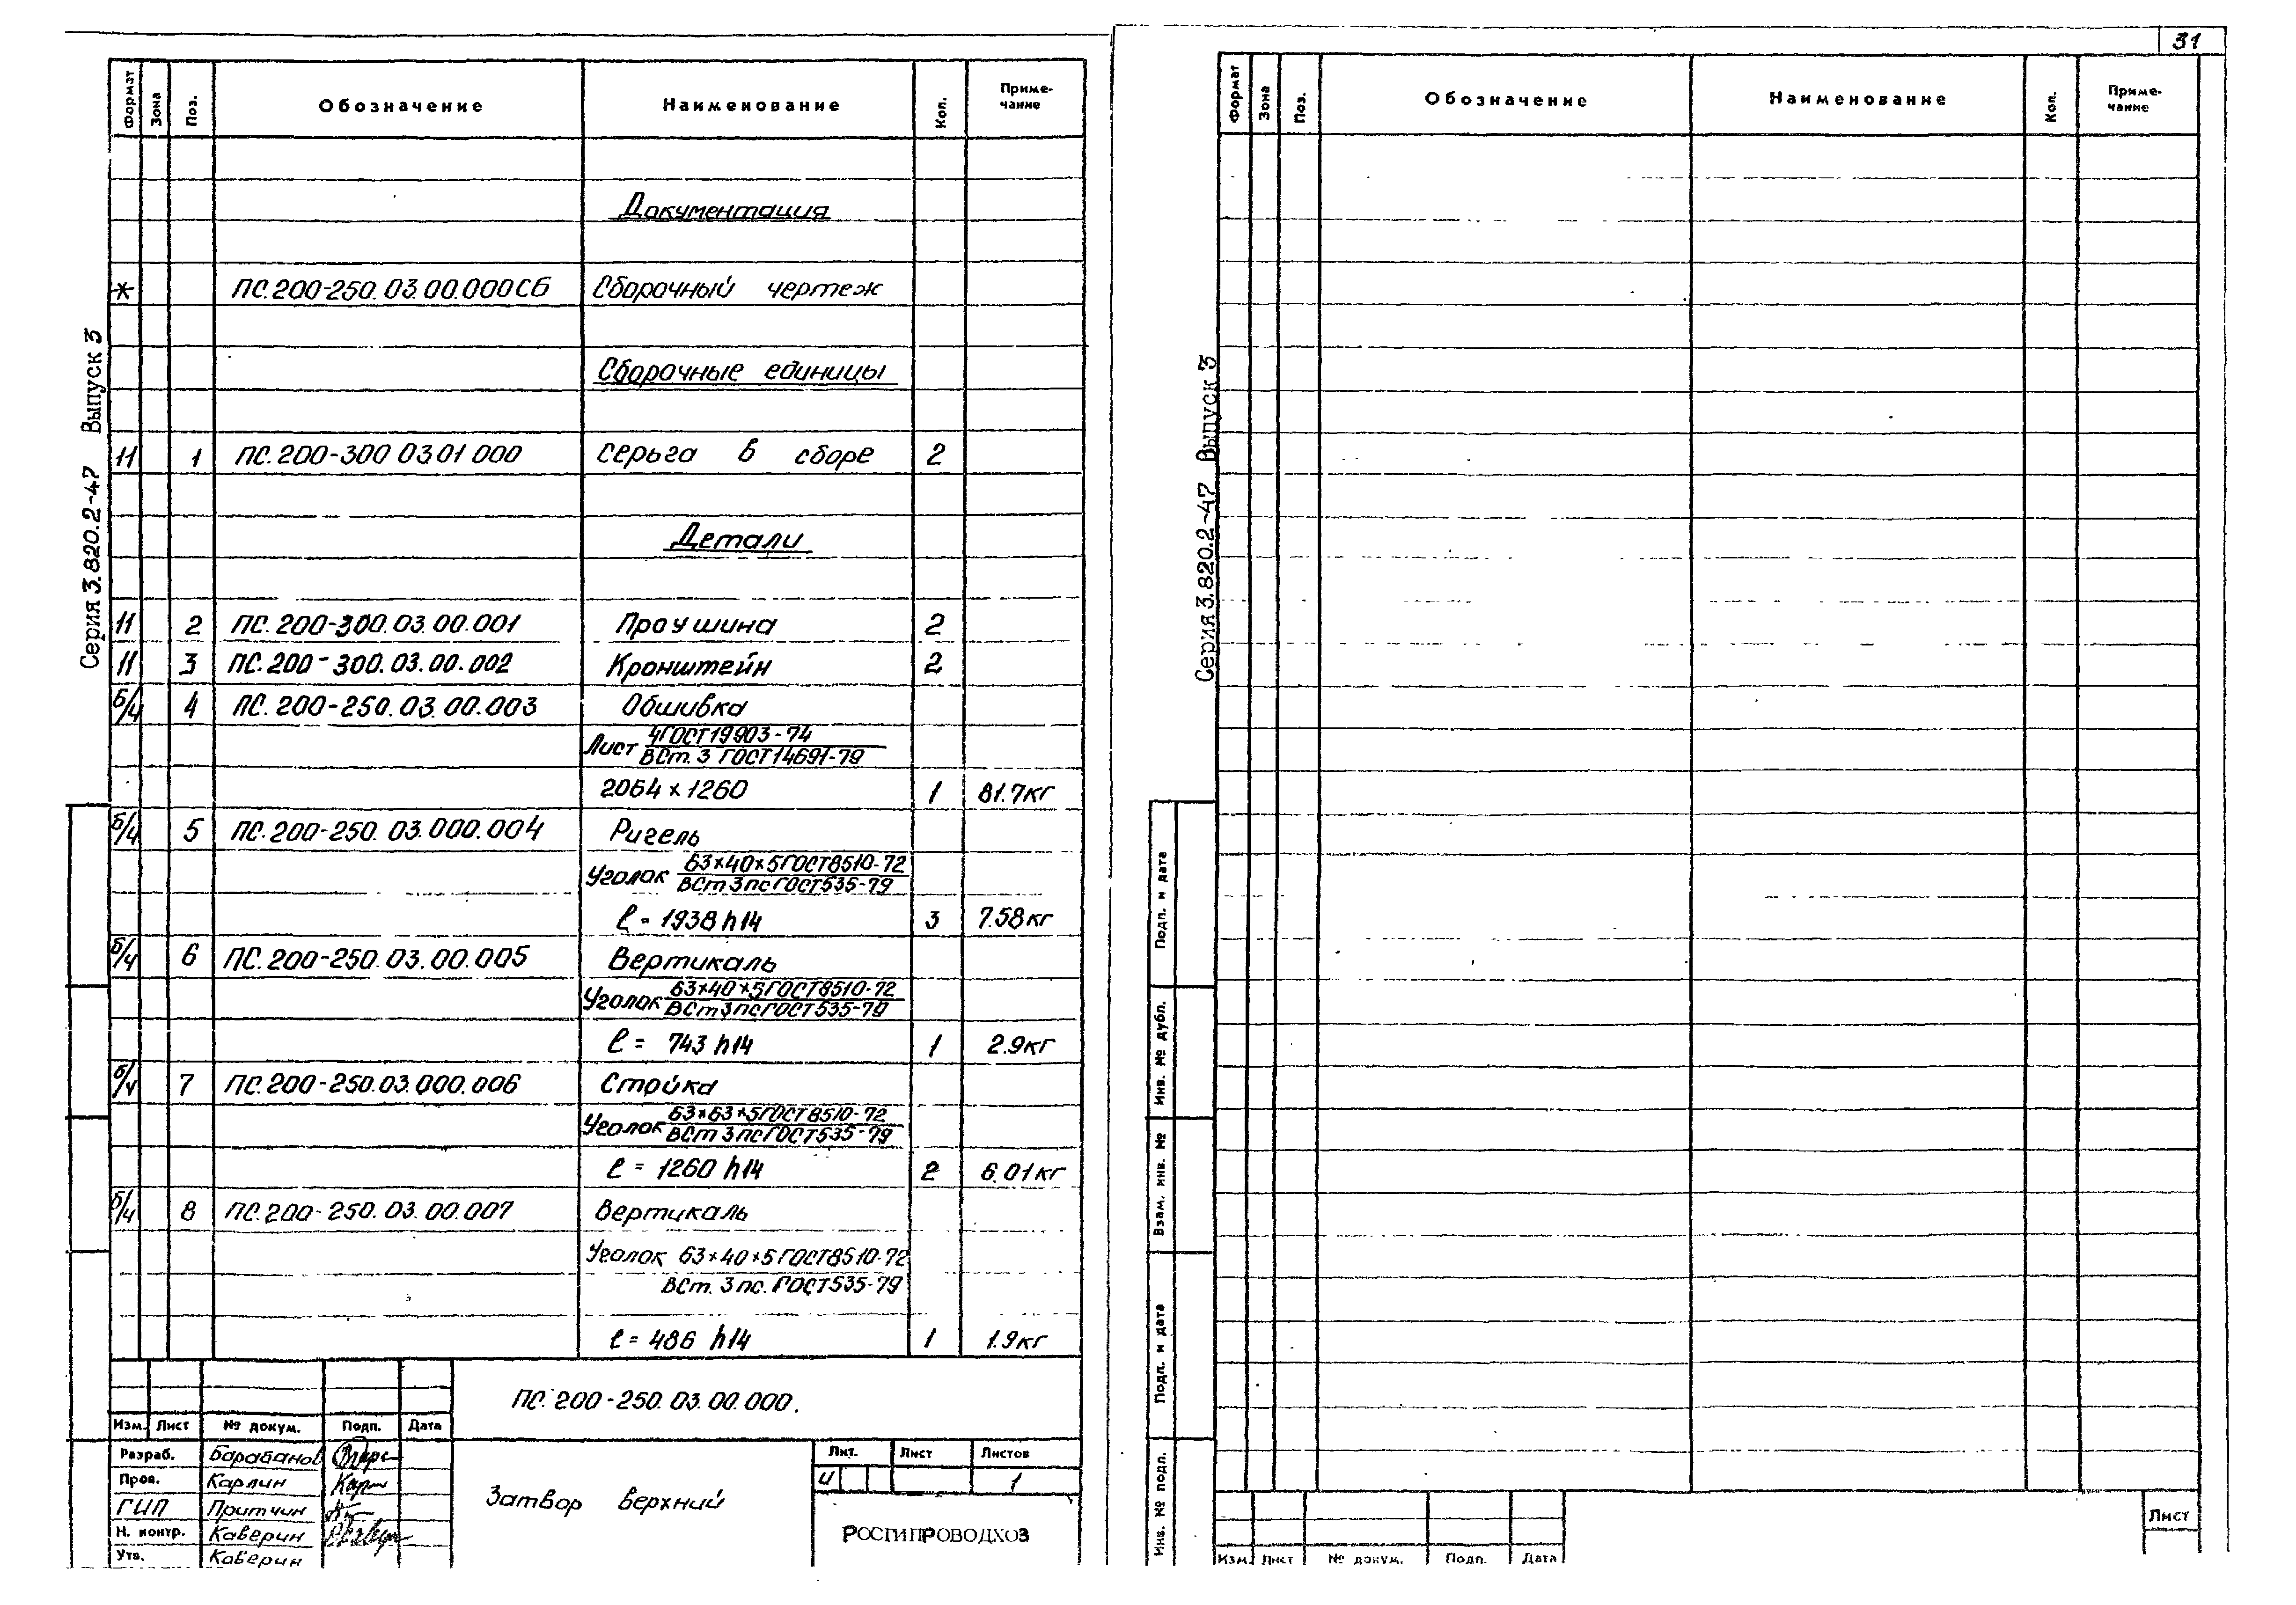 31
Формат Зона Поз. Обозначение Наименование Кол. Приме-
чание
Документация
* ПС.200-250.03.00.000СБ Сборочный чертеж
Сборочные единицы
11 1 ПС.200-300 03 01 000 Серьга в сборе 2
Детали
11 2 ПС.200-300.03.00.001 Проушина 2
11 3 ПС.200-300.03.00.002 Кронштейн 2
б/ч 4 ПС.200-250.03.00.003 Обшивка
Лист 4ГОСТ19903-74
ВСт.3 ГОСТ14691-79
2064×1260 1 81.7кг
б/ч 5 ПС.200-250.03.000.004 Ригель
Уголок 63×40×5ГОСТ8510-72
ВСт3псГОСТ535-79
ℓ=1938h14 3 7.58кг
б/ч 6 ПС.200-250.03.00.005 Вертикаль
Уголок 63×40×5ГОСТ8510-72
ВСт3псГОСТ535-79
ℓ= 743 h14 1 2.9кг
б/ч 7 ПС.200-250.03.000.006 Стойка
Уголок 63×63×5ГОСТ8510-72
ВСт 3псГОСТ535-79
ℓ = 1260 h14 2 6.01кг
б/ч 8 ПС.200-250.03.00.007 Вертикаль
Уголок 63×40×5ГОСТ8510-72
ВСт.3пс.ГОСТ535-79
ℓ=486 h14 1 1.9кг
Серия 3.820.2-47 Выпуск 3
ПС.200-250.03.00.000.
Изм. Лист № докум. Подп. Дата
Разраб. Барабанов
Пров. Карлин
ГИП Притчин
Н. контр. Каверин
Утв. Каверин
Затвор верхний
Лит. Лист Листов
И 1
РОСГИПРОВОДХОЗ
Формат Зона Поз. Обозначение Наименование Кол. Приме-
чание
Серия 3.820.2-47 Выпуск 3
Подп. и дата
Инв. № дубл.
Взам. инв. №
Подп. и дата
Инв. № подп.
Изм. Лист № докум. Подп. Дата
Лист